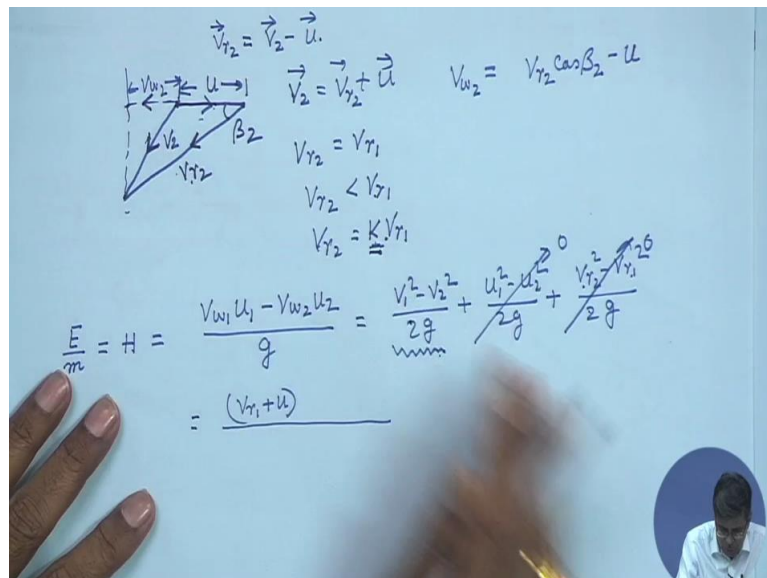 V⃗r₂ = V⃗₂ - U⃗.
Vw₂ U
V⃗₂ = V⃗r₂ + U⃗
Vw₂ = Vr₂ cosβ₂ - U
β₂
V₂
Vr₂
Vr₂ = Vr₁
Vr₂ < Vr₁
Vr₂ = K.Vr₁
E/m = H = (Vw₁U₁ - Vw₂U₂)/g = (V₁² - V₂²)/2g + (U₁² - U₂²)/2g 0 + (Vr₂² - Vr₁²)/2g 0
= (Vr₁ + U)